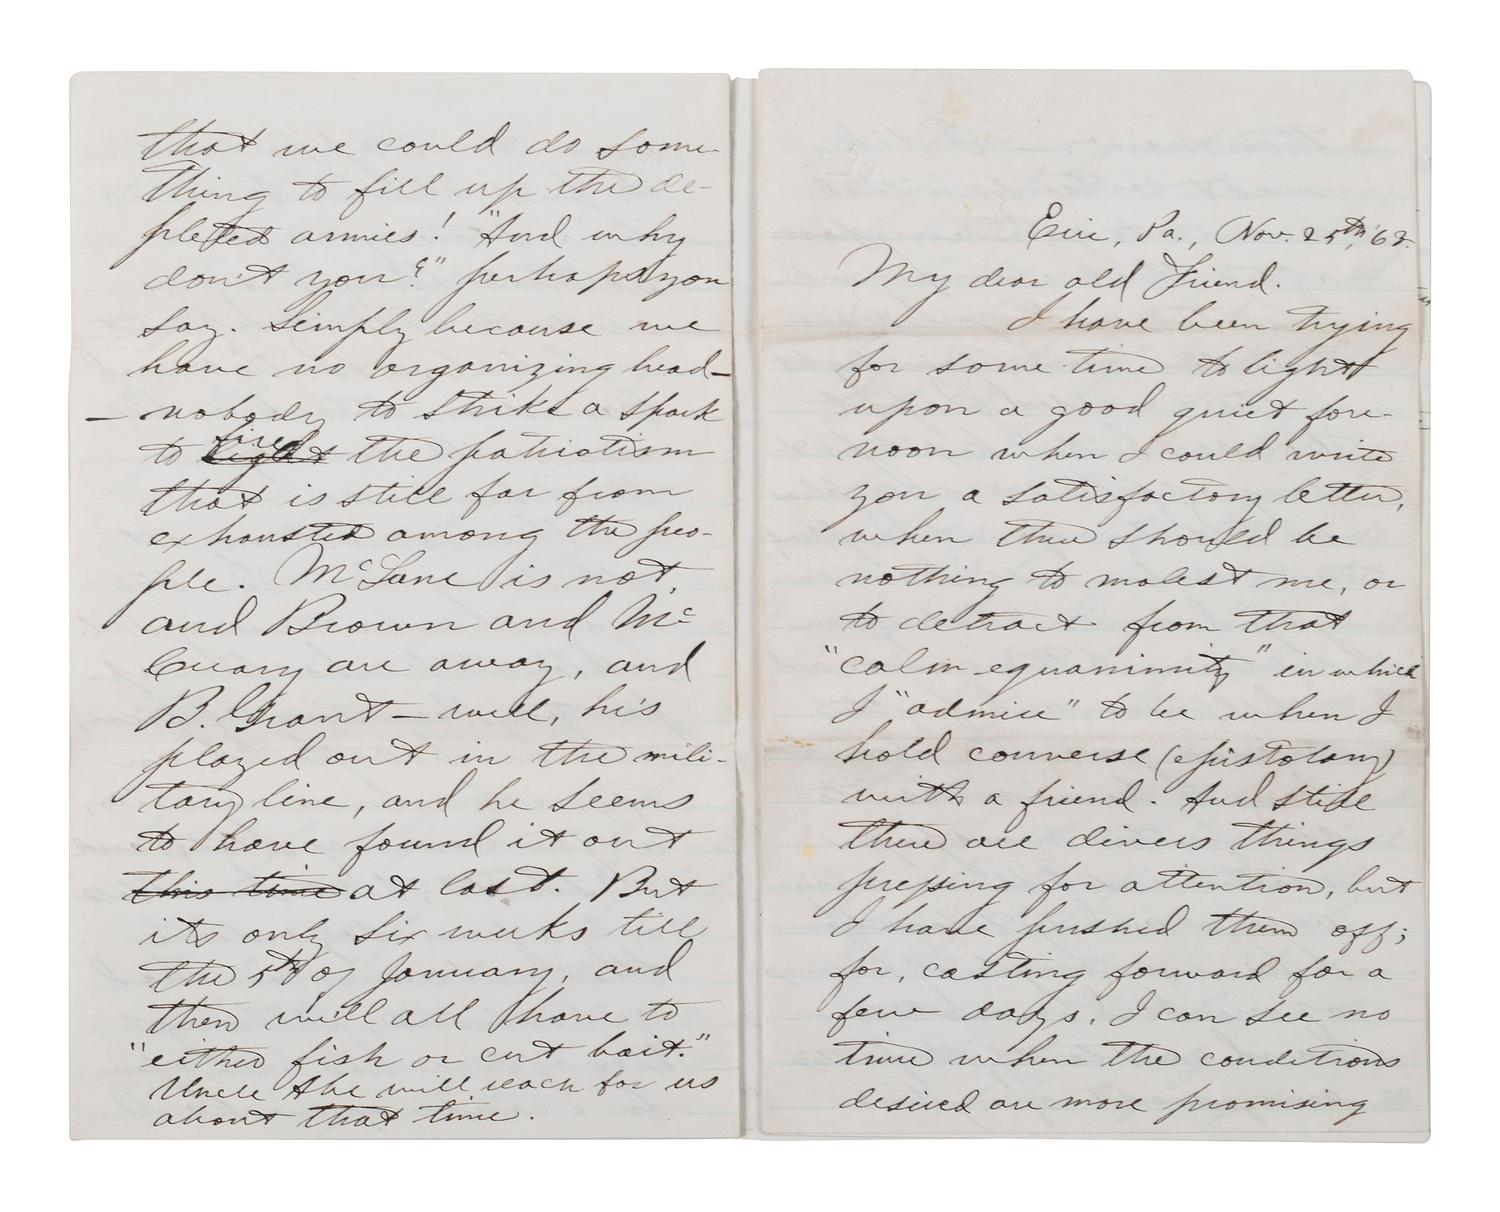 that we could do some-
thing to fill up the de-
pleted armies! "And why
don't you?" perhaps you
say. Simply because we
have no organizing head—
— nobody to strike a spark
to light fire the patriotism
that is still far from
exhausted among the peo-
ple. McLane is not,
and Brown and Mc
Creary are away, and
B. Grant — well, his
played out in the mili-
tary line, and he seems
to have found it out
this time at last. But
its only six weeks till
the 5th of January, and
then will all have to
"either fish or cut bait."
Uncle Abe will reach for us
about that time.
Erie, Pa., Nov. 25th, '63.
My dear old Friend.
I have been trying
for some time to light
upon a good quiet fore-
noon when I could write
you a satisfactory letter,
when there should be
nothing to molest me, or
to detract from that
"calm equanimity" in which
I "admire" to be when I
hold converse (epistolary)
with a friend. And still
there are divers things
pressing for attention, but
I have pushed them off;
for, casting forward for a
few days, I can see no
time when the conditions
desired are more promising